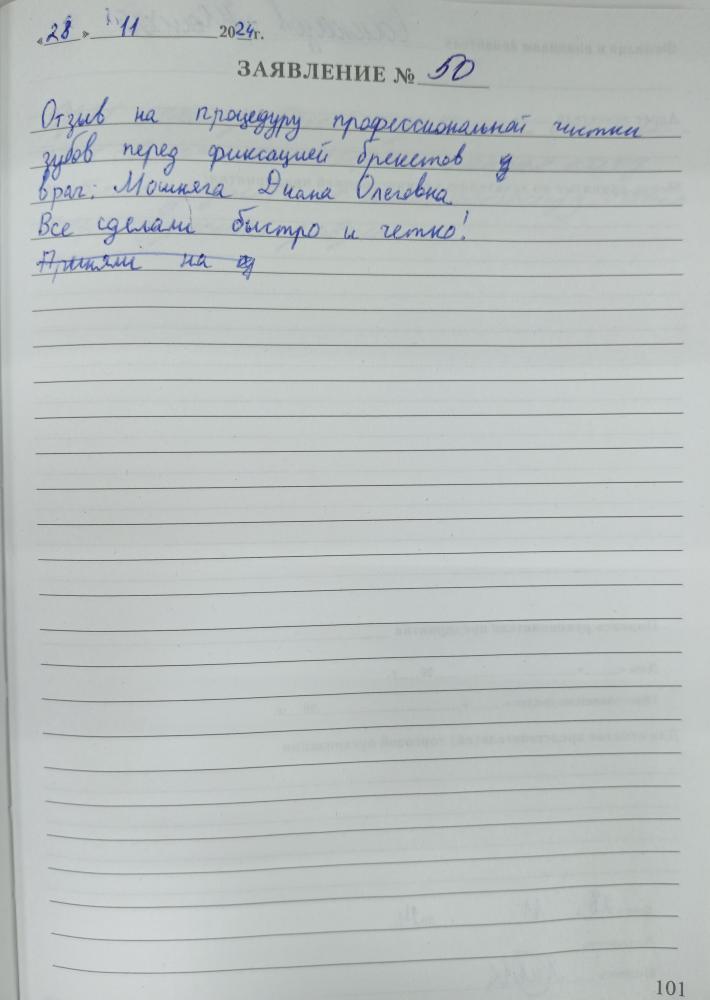 «28» 11 2024г.
ЗАЯВЛЕНИЕ № 50
Отзыв на процедуру профессиональной чистки
зубов перед фиксацией брекетов
врач: Мошняга Диана Олеговна
Все сделали быстро и четко!
Приняли на
101